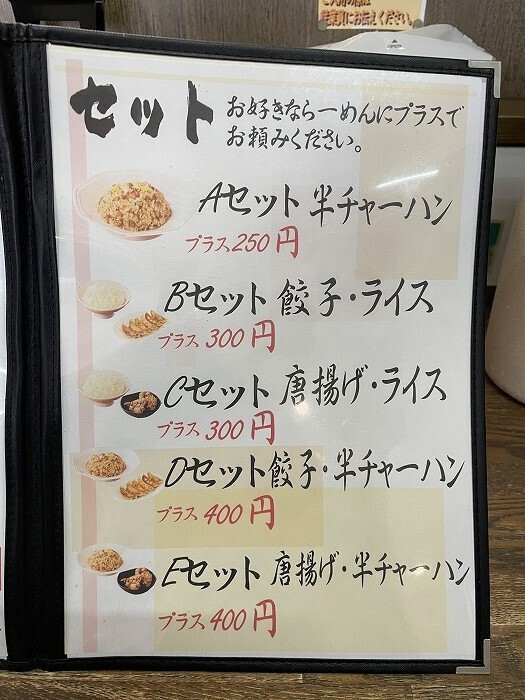 従業員にお伝えください。
OPEN
セット
お好きならーめんにプラスで
お頼みください。
Aセット 半チャーハン
プラス250円
Bセット 餃子・ライス
プラス300円
Cセット 唐揚げ・ライス
プラス300円
Dセット 餃子・半チャーハン
プラス400円
Eセット 唐揚げ・半チャーハン
プラス400円